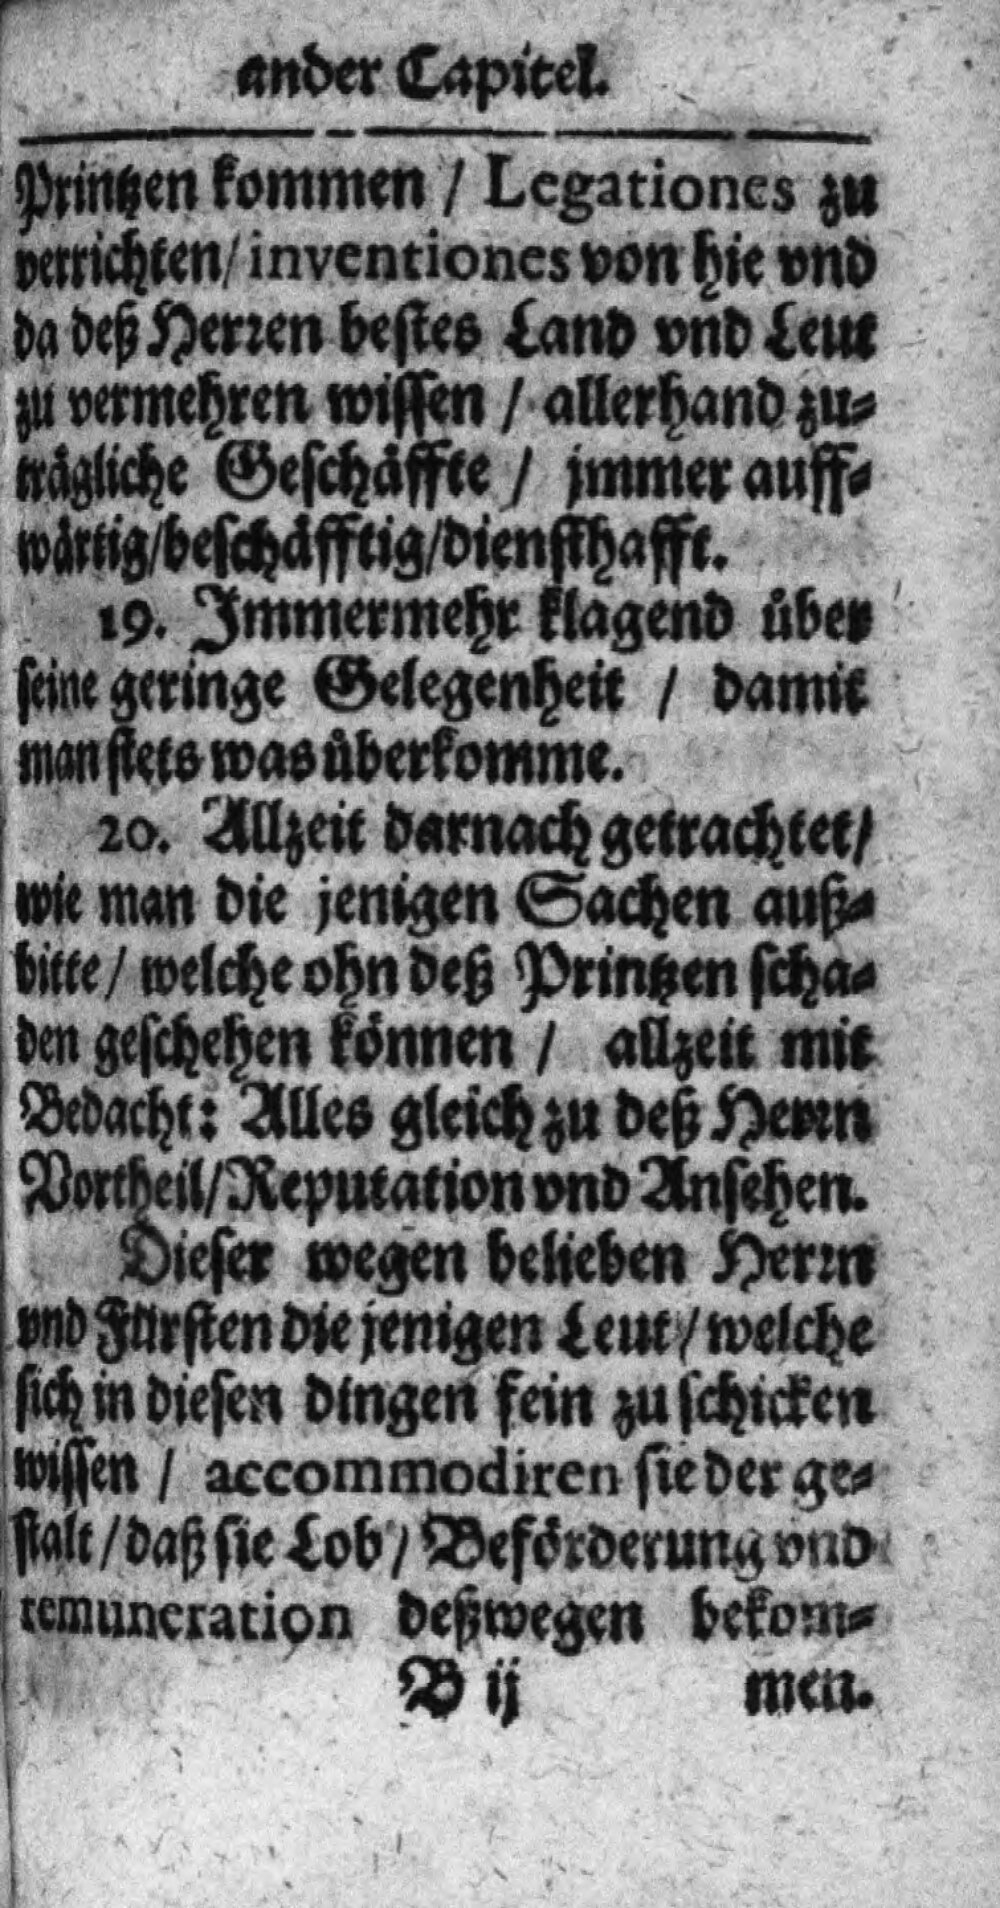 ander Capitel.
Printzen kommen / Legationes zu
verrichten / inventiones von hie vnd
da deß Herren bestes Land vnd Leut
zu vermehren wissen / allerhand zu-
trägliche Geschäffte / jmmer auff-
wärtig / beschäfftig / diensthafft.
19. Immermehr klagend über
seine geringe Gelegenheit / damit
man stets was überkomme.
20. Allzeit darnach getrachtet /
wie man die jenigen Sachen auß-
bitte / welche ohn deß Printzen scha-
den geschehen können / allzeit mit
Bedacht: Alles gleich zu deß Herrn
Vortheil / Reputation vnd Ansehen.
Dieser wegen belieben Herrn
vnd Fürsten die jenigen Leut / welche
sich in diesen dingen fein zu schicken
wissen / accommodiren sie der ge-
stalt / daß sie Lob / Beförderung vnd
remuneration deßwegen bekom-
B ij men.